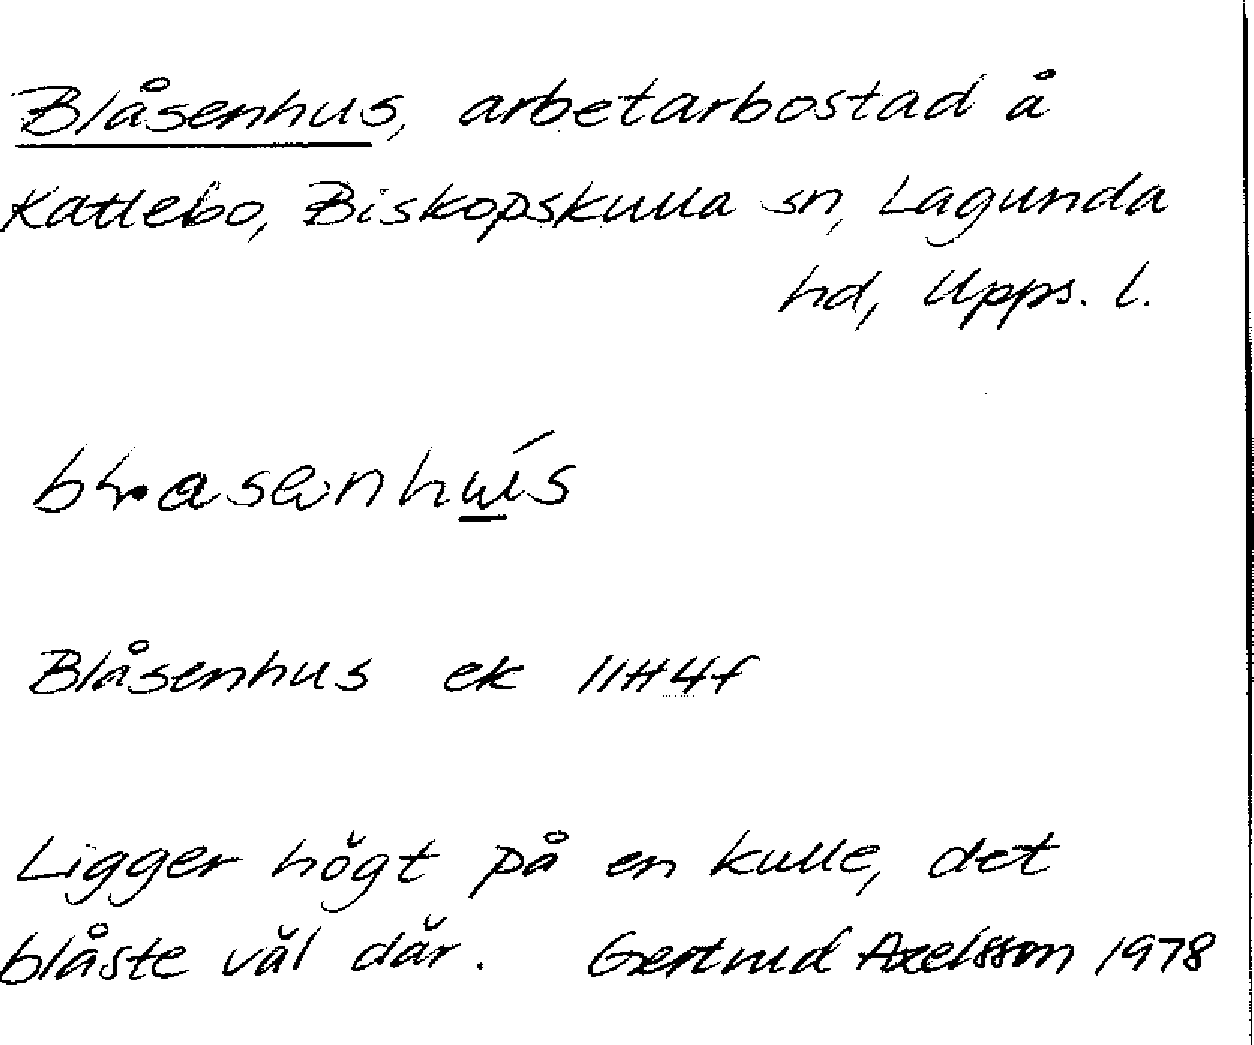 Blåsenhus, arbetarbostad å
Kattlebo, Biskopskulla sn, Lagunda
hd, Upps. l.
Blåsenhus ek 11H4f
Ligger högt på en kulle, det
blåste väl där. Gertrud Axelsson 1978